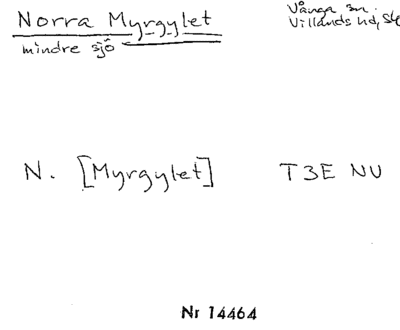 Norra Myrgylet
mindre sjö
Vånga sn.
Villands hd, Sk
N. [Myrgylet]
T3E NV
Nr 14464